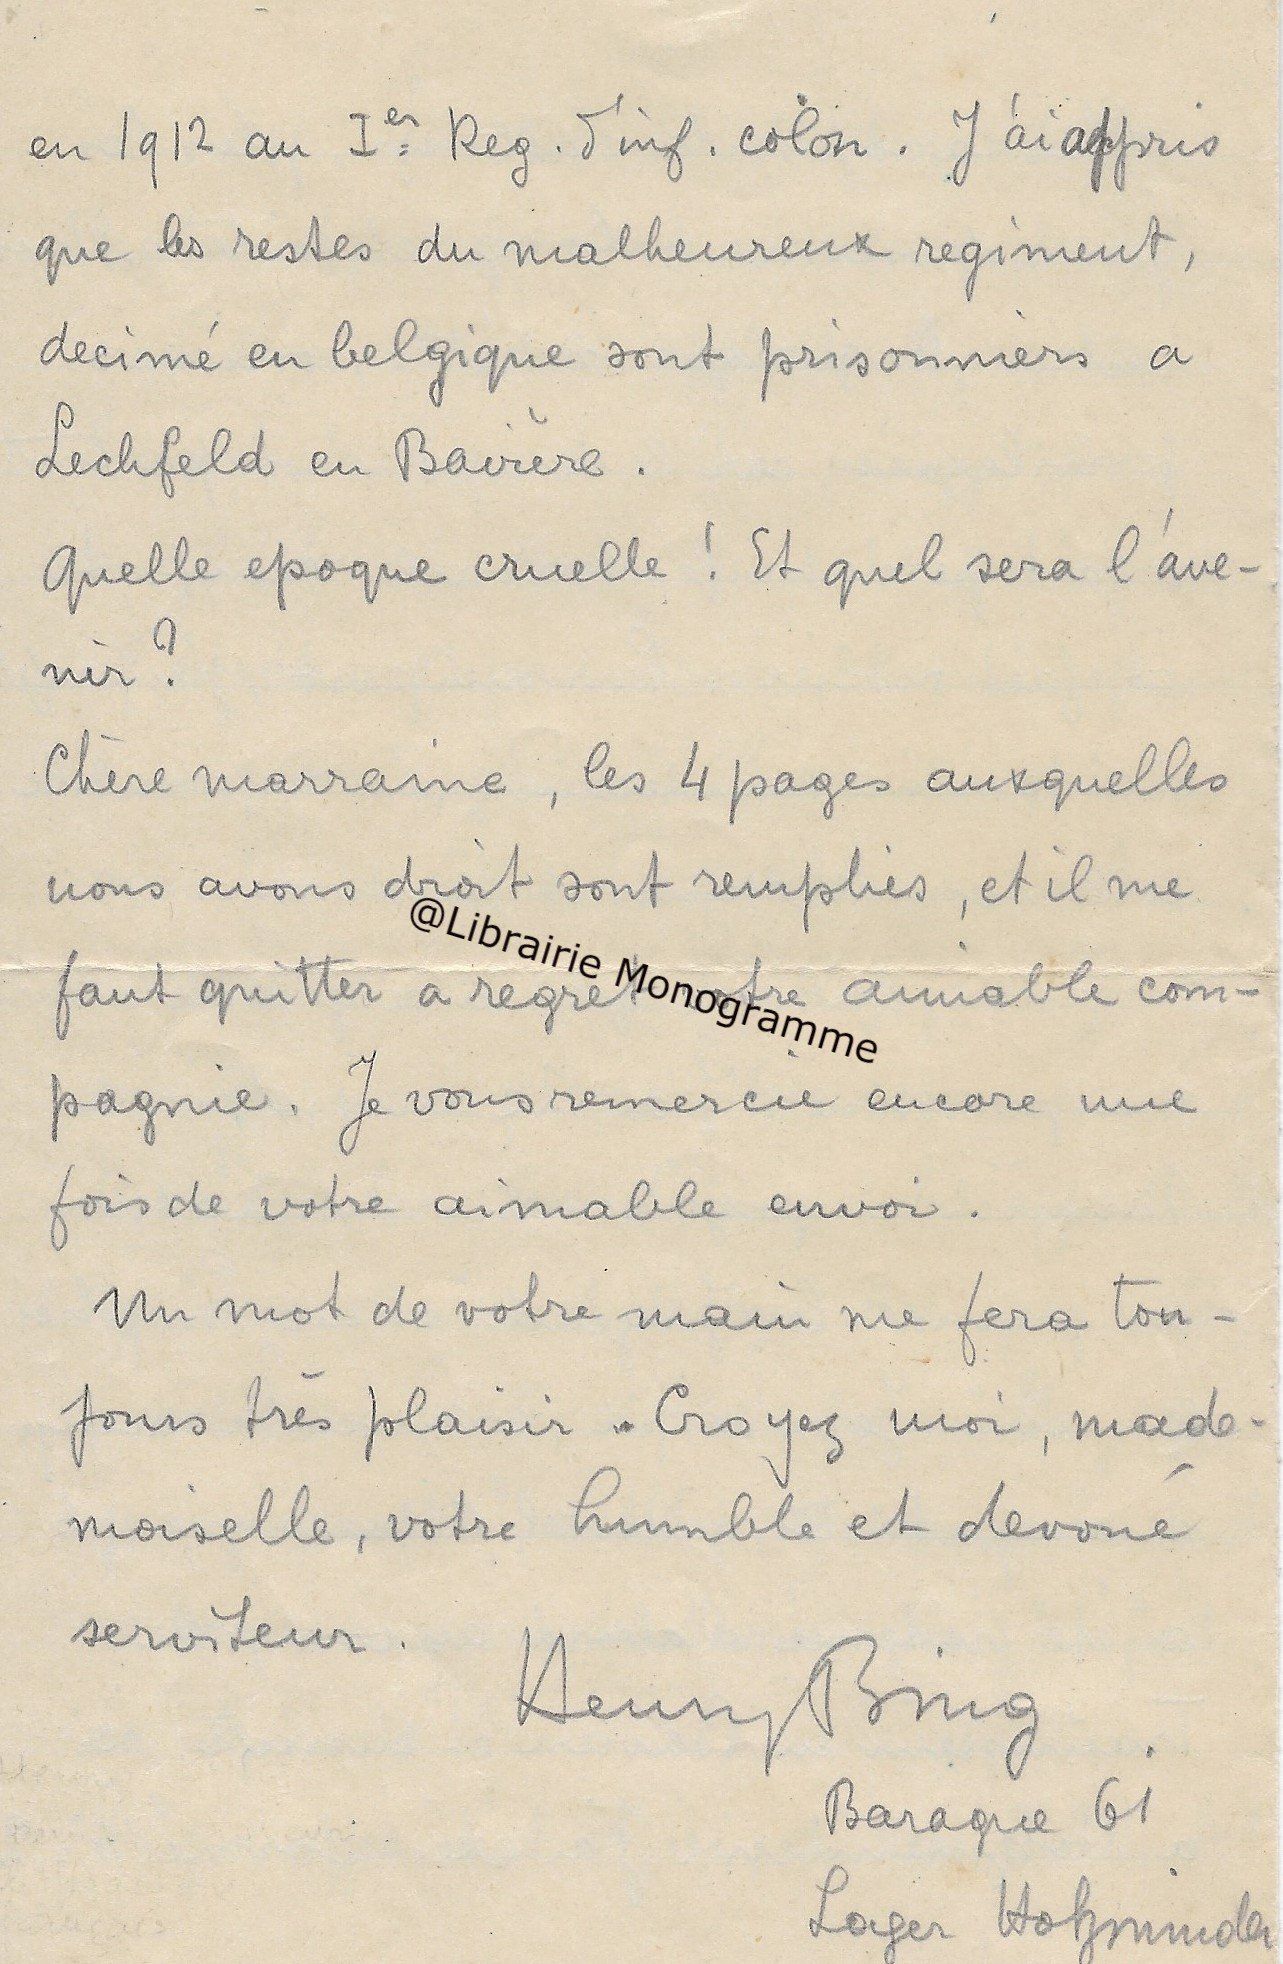 en 1912 au Ier Reg. d'inf. colon. J'ai appris
que les restes du malheureux regiment,
decimé en belgique sont prisonniers a
Lechfeld en Bavière.
Quelle epoque cruelle ! Et quel sera l'ave-
nir ?
Chère marraine, les 4 pages auxquelles
nous avons droit sont remplies, et il me
faut quitter a regret votre aimable com-
pagnie. Je vous remercie encore une
fois de votre aimable envoi.
Un mot de votre main me fera tou-
jours très plaisir. Croyez moi, made-
moiselle, votre humble et devoué
serviteur.
Henry Bing
Baraque 61
Lager Holzminden
@Librairie Monogramme